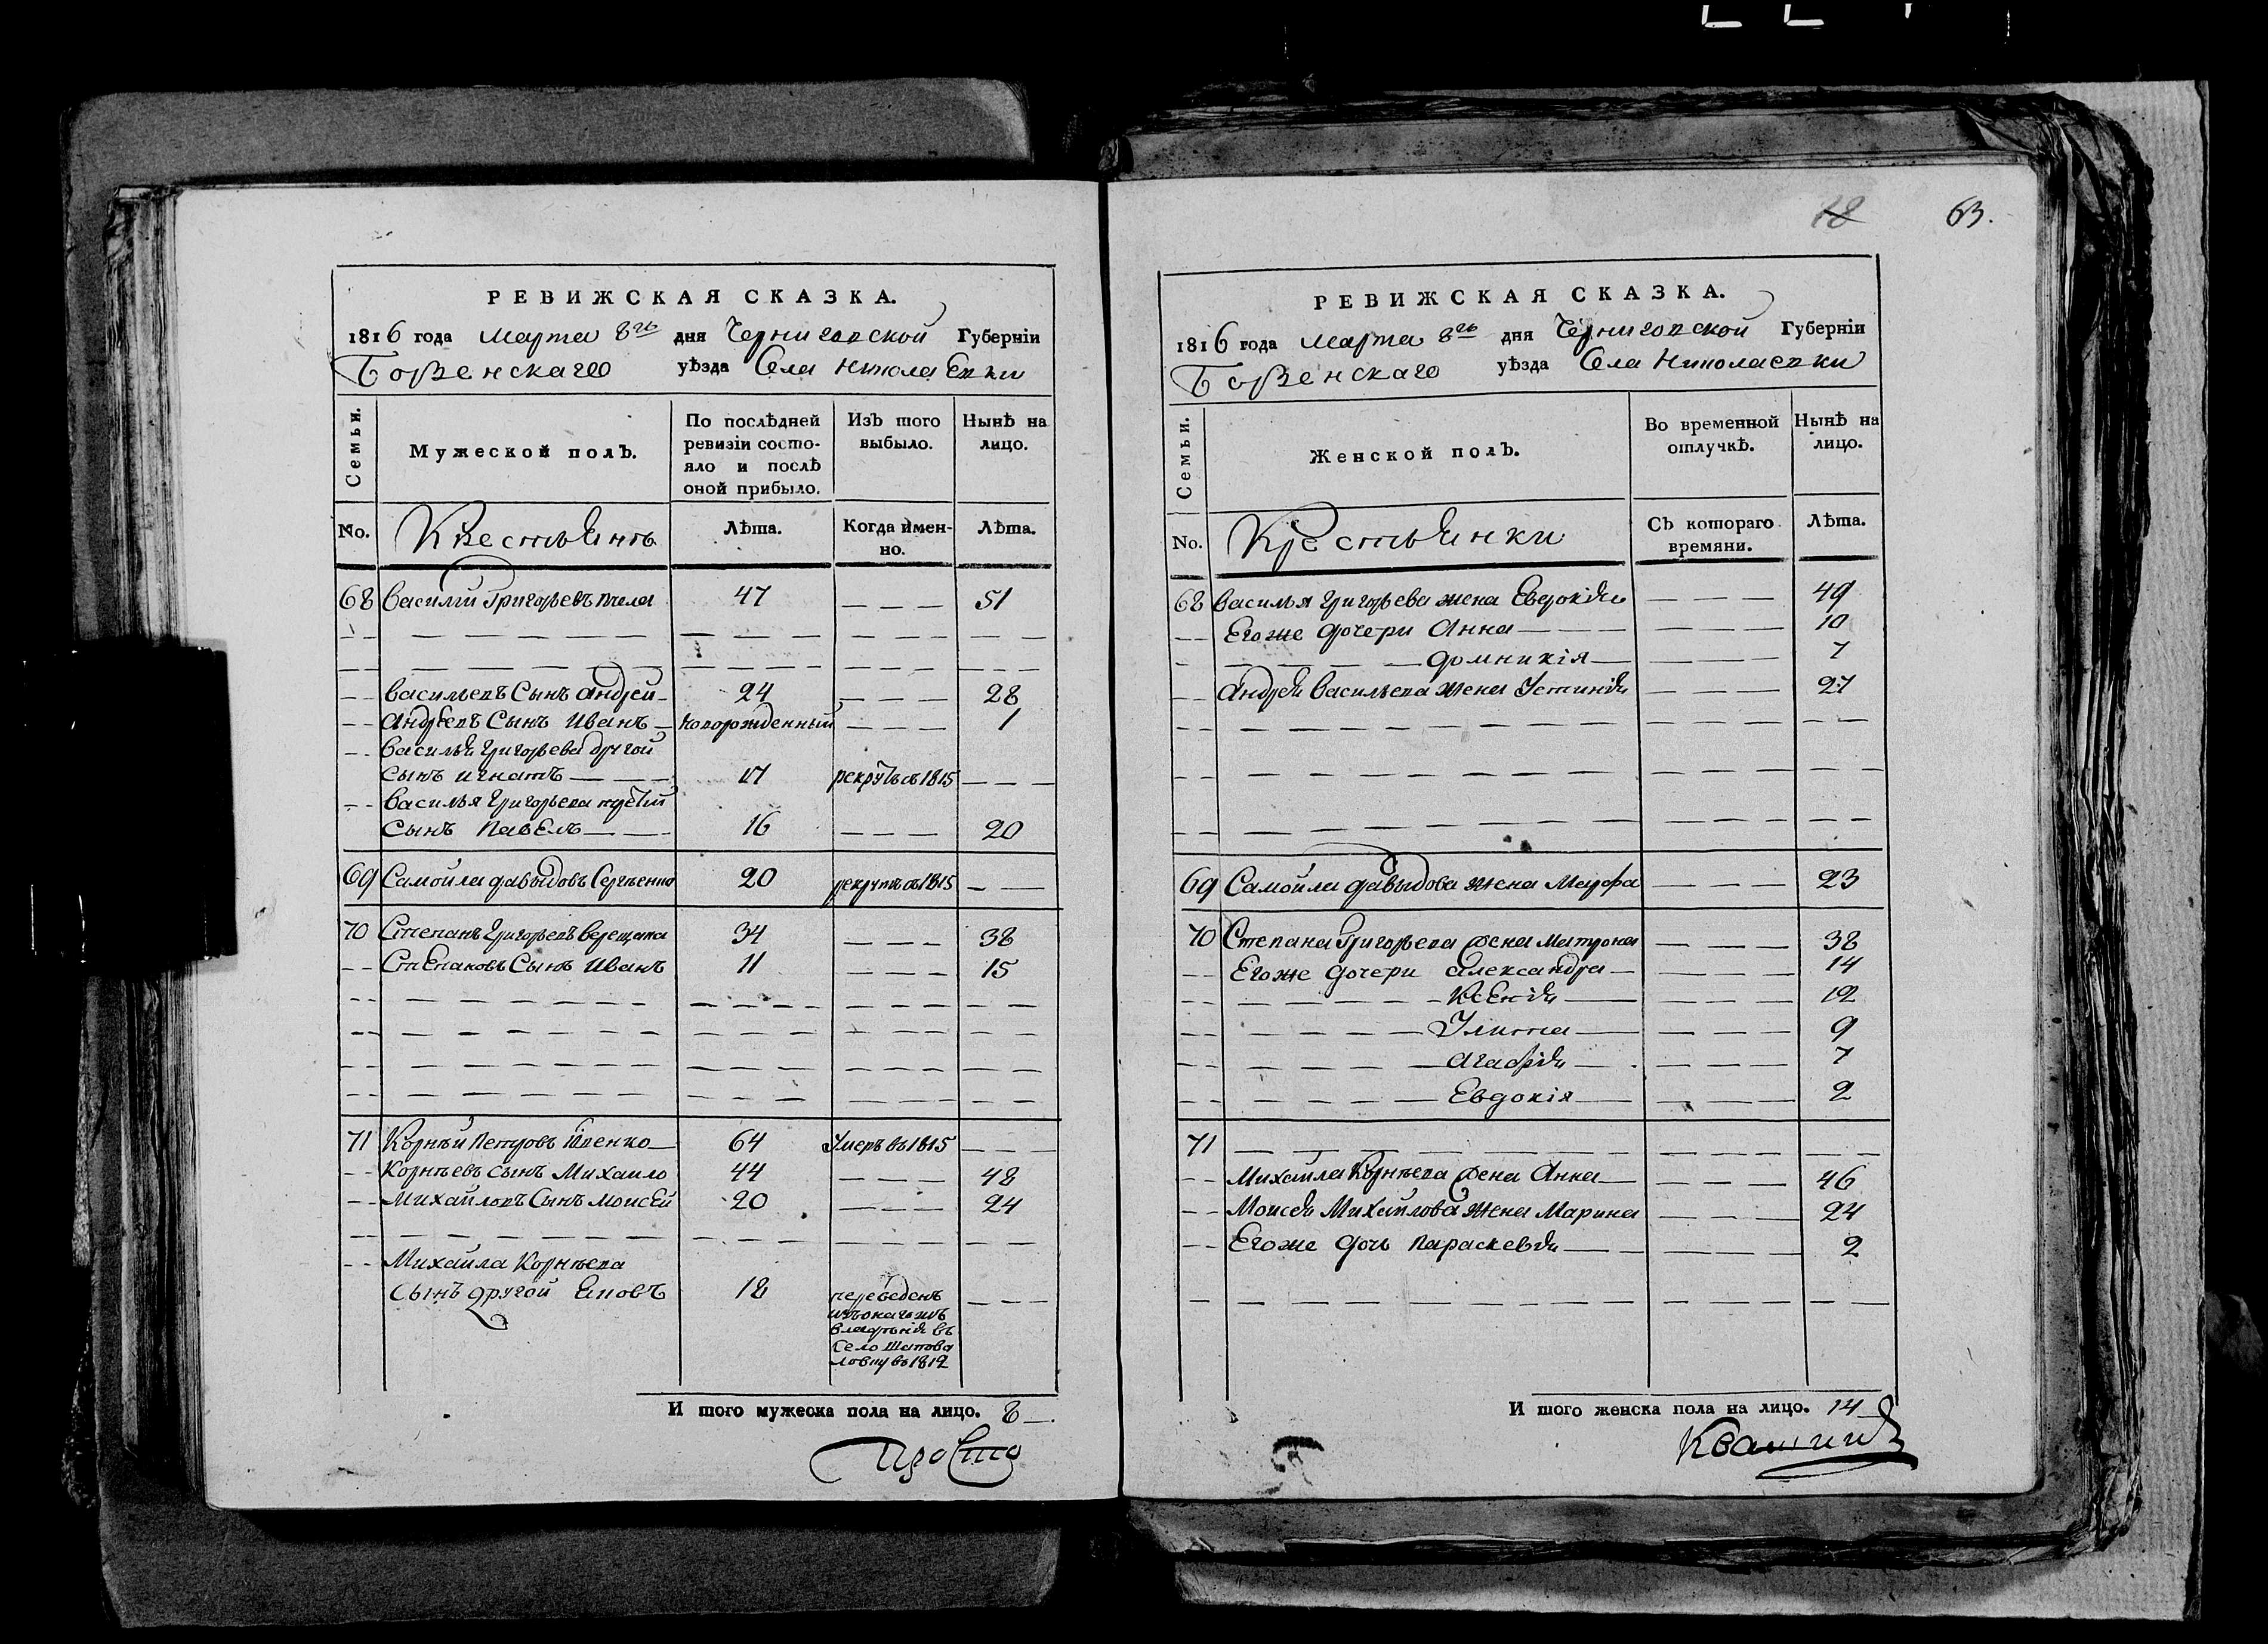 РЕВИЖСКАЯ СКАЗКА.
1816 года Марта 8го дня Черниговской Губерніи
Борзенскаго уѣзда Села Николаевки
Семьи. Мужеской полъ. По послѣдней ревизіи состо- Изъ того Нынѣ на
яло и послѣ оной прибыло. выбыло. лицо.
No. Крестьянъ Лѣта. Когда имен- Лѣта.
но.
68 Василий Григорьевъ Пчела 47 — — — 51
Васильевъ Сынъ Андрей 24 — — — 28
Андреевъ Сынъ Иванъ новорожденный — — — 1
Василья Григорьева другой
Сынъ Игнатъ 17 рекрутъ въ 1815 — — —
Василья Григорьева третий
Сынъ Павелъ 16 — — — 20
69 Самойла Давыдовъ Сергѣенко 20 рекрутъ въ 1815 — —
70 Степанъ Григорьевъ Верещака 34 — — — 38
Степановъ Сынъ Иванъ 11 — — — 15
71 Корнѣй Петровъ 64 Умеръ въ 1815 — — —
Корнѣевъ сынъ Михаило 44 — — — 48
Михайловъ Сынъ Моисей 20 — — — 24
Михайла Корнѣева
сынъ другой 18 переведенъ — — —
владѣнія въ
Село Шапова
ловку въ 1812
И того мужеска пола на лицо. 8
63.
РЕВИЖСКАЯ СКАЗКА.
1816 года Марта 8го дня Черниговской Губерніи
Борзенскаго уѣзда Села Николаевки
Семьи. Женской полъ. Во временной Нынѣ на
отлучкѣ. лицо.
No. Крестьянки Съ котораго Лѣта.
времяни.
68 Василья Григорьева жена Евдокія — — — 49
Егоже дочери Анна — — — 10
Домникія — — — 7
Андрея Васильева жена Устинія — — — 27
69 Самойла Давыдова жена Марфа — — — 23
70 Степана Григорьева жена Матрона — — — 38
Егоже дочери Александра — — — 14
Ксенія — — — 12
Улита — — — 9
Агафія — — — 7
Евдокія — — — 2
71 — — —
Михайла Корнѣева жена Анна — — — 46
Моисея Михайлова жена Марина — — — 24
Егоже дочь Параскевія — — — 2
И того женска пола на лицо. 14